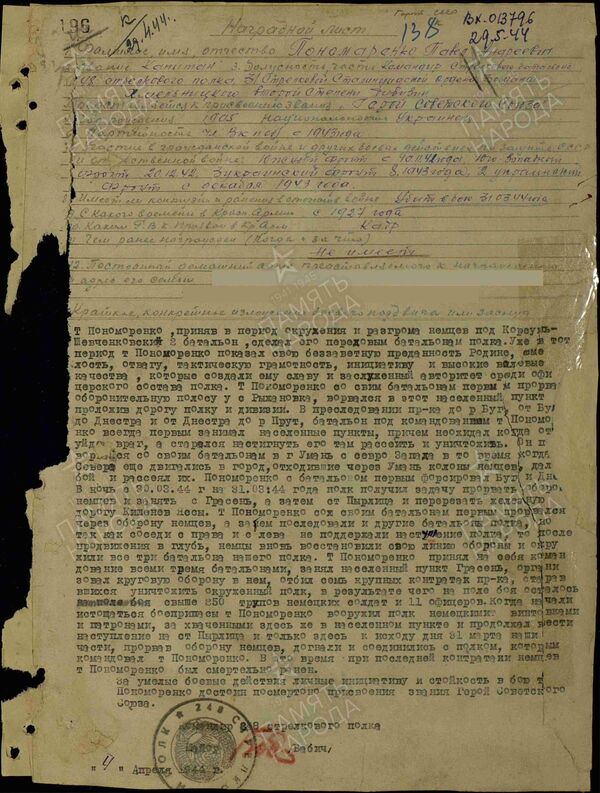 196
К 29.4.44.
138
Вх-013796
29.5.44
Наградной лист
1. Фамилие, имя отчество Пономаренко Павел
2. Звание Капитан 3. Должность, часть Командир Стрелкового батальона
248 стрелкового полка, 31 Стрелковой Сталинградской ордена Богдана
Хмельницкого Второй Степени дивизии
к присвоению звания, Герой Советского Союза
рождения 1905 Национальность Украинец
Партийность чл. ВКП(б) с 1943 года
Участие в гражданской войне и других боевых действиях по защите СССР
и отечественной войне: Южный фронт с Юго Западный
фронт 20.12.42. 3 украинский фронт 8.1943 года, 2 украинский
фронт с декабря 1943 года.
8. Имеет ли контузии и ранения в отечеств войне Убит в бою 310344 года
9. С Какого времени в Красн Армии с 1927 года
10. Каким Р.В.К Призван в Кр Арм Кадр
Чем ранее награжден (Погок + за что)
Не имеет
12. Постоянный домашний адрес представляемого к награждению
адрес его семьи
Краткое, конкретное изложение боевого подвига или заслуг
Т Пономоренко , приняв в период окружения и разгрома немцев под Корсунь-
Шевченковский 2 батальон ,сделал его передовым батальонам полка. Уже в тот
период т Пономоренко показал свою беззаветную преданность Родине, сме
лость, отвагу, тактическую грамотность, инициативу и высокие валовые
качества , которые создали ему славу и заслуженный авторитет среди офи
церского состава полка. Т Пономоренко со свим батальонам первым прорва
оборонительную полосу у с Рыжановка, ворвался в этот населенный пункт
проложив дорогу полку и дивизии. В преследовании пр-ка до р Буг, от Бу
до Днестра и от Днестра до р Прут, батальон под командованием т Пономо
нко всегда первым занимал населенные пункты, причем неожидал когда от
уйдет враг, а старался настигнуть его там рассеить и уничтожить. Он п
ворвался со своим батальонам в г Умань с севро Запада в то время когда
Севера еще двигались в город, отходившие через Умань колоны немцев, дал
бой и рассеял их. Пономоренко с батальоном первым форсировал Буг и Дне
В ночь с 30.03.44 г на 31.03.44 года полк получил задачу прорвать оборо
немцев и занять с Грасень, а затем ст Пырлица и перерезать железную
дорогу Кишенев Ясси. Т Пономоренко сох своим батальонам первым прорвался
через оборону немцев, а зачем последовали и другие батальоны полка, но
так как соседи с права и с лева не поддержали наступление полка, то после
продвижения в глубь, немцы вновь востоновили свою линию обороны и окру
жили все три батальона нашего полка. Т Пономоренко принял на себя коман
дование всеми тремя батальонами, занял населенный пункт Грасень, органи
зовал круговую оборону в нем, отбил семь крупных контратак пр-ка, старав
вшихся уничтожить окруженный полк, в результате чего на поле боя осталось
свыше 250 трупов немецких солдат и 11 офицеров. Когда начали
истощаться боеприпасы т Пономоренко вооружил полк немецкими винтовками
и патронами, за хваченными здесь же в населенном пункте и продолжал вести
наступление на ст Пырлица и только здесь к исходу дня 31 марта наши
части, прорвав оборону немцев, догнали и соединились с полком, которым
командовал т Пономоренко. В это время при последней контратаки немцев
т Пономоренко был смертельно ранен.
За умелые боевые действия личные инициативу и стойкость в бою т
Пономоренко достоин посмертого присвоения звания Герой Советского
Союза.
Командор 248 стрелкового полка
Майор Бабич/
"4" Апреля 1944 г.